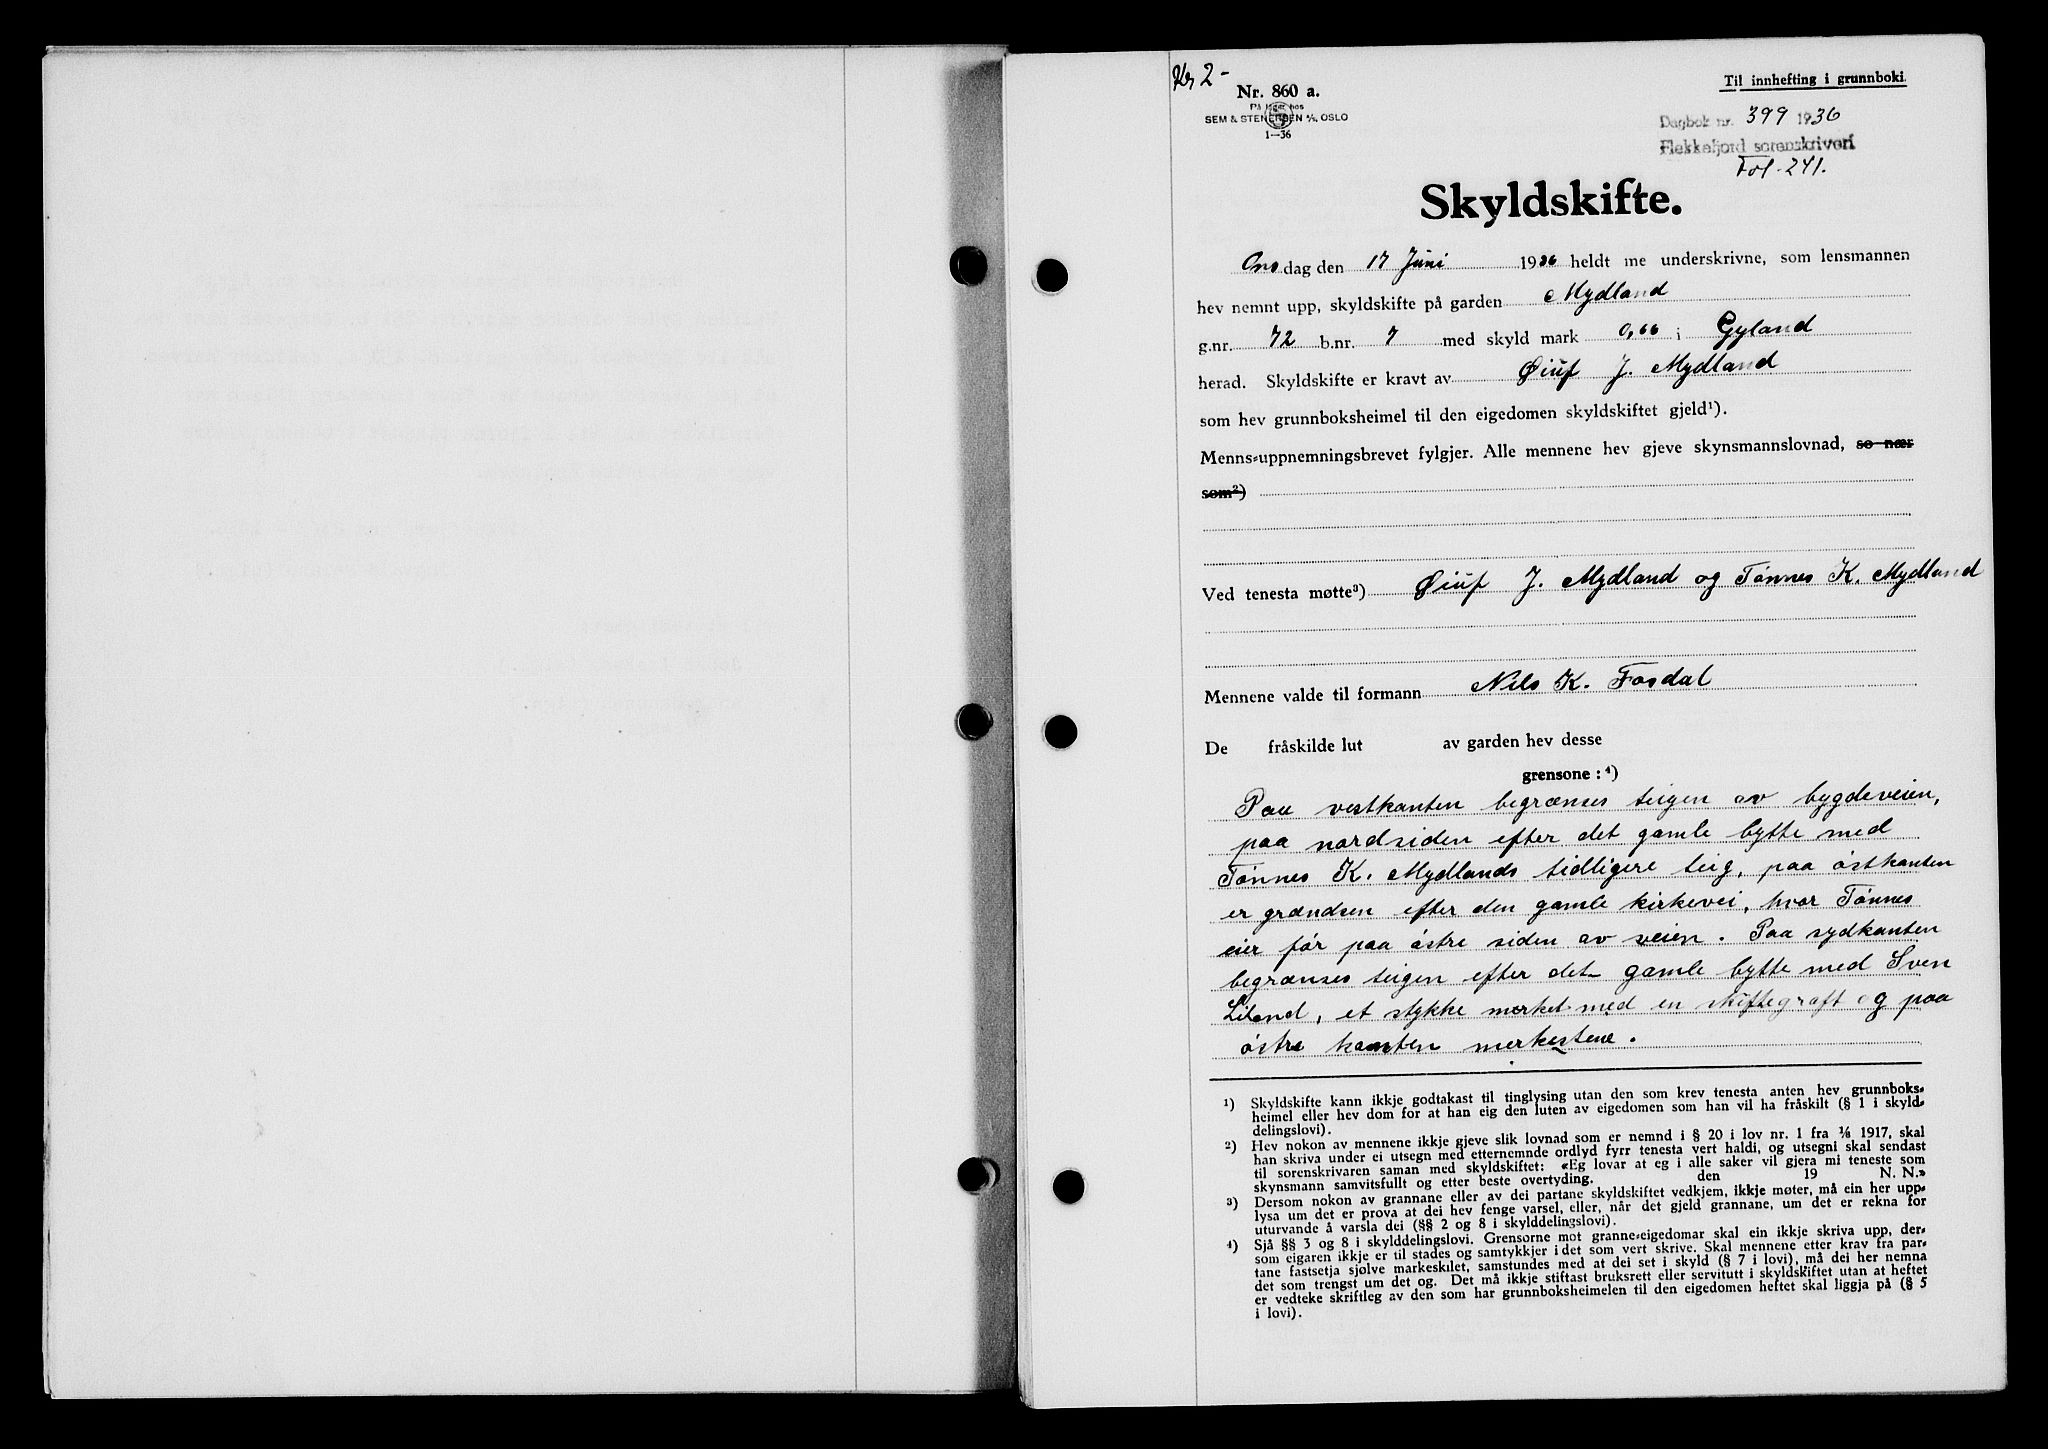 Kr 2-
Nr. 860 a.
På lager hos
SEM & STENERSEN A/S, OSLO
1—36
Til innhefting i grunnboki.
Dagbok nr. 399 1936
Flekkefjord sorenskriveri
Fol. 241.
Skyldskifte.
Onsdag den 17 Juni 1936 heldt me underskrivne, som lensmannen
hev nemnt upp, skyldskifte på garden Mydland
g.nr. 72 b.nr. 7 med skyld mark 0,66 i Gyland
herad. Skyldskifte er kravt av Øiuf J. Mydland
som hev grunnboksheimel til den eigedomen skyldskiftet gjeld¹).
Menns-uppnemningsbrevet fylgjer. Alle mennene hev gjeve skynsmannslovnad, so nær
som²)
Ved tenesta møtte³) Øiuf J. Mydland og Tønnes K. Mydland
Mennene valde til formann Nils K. Fosdal
De fråskilde lut av garden hev desse
grensone: ⁴)
Paa vestkanten begrænses teigen av bygdeveien,
paa nordsiden efter det gamle bytte med
Tønnes K. Mydlands tidligere teig, paa østkanten
er grændsen efter den gamle kirkevei, hvor Tønnes
eier før paa østre siden av veien. Paa sydkanten
begrænses teigen efter det gamle bytte med Sven
Liland, et stykke merket med en skiftegrøft og paa
østre kanten merkestene.
¹) Skyldskifte kann ikkje godtakast til tinglysing utan den som krev tenesta anten hev grunnboks-
heimel eller hev dom for at han eig den luten av eigedomen som han vil ha fråskilt (§ 1 i skyld-
delingslovi).
²) Hev nokon av mennene ikkje gjeve slik lovnad som er nemnd i § 20 i lov nr. 1 fra ⅛ 1917, skal
han skriva under ei utsegn med etternemnde ordlyd fyrr tenesta vert haldi, og utsegni skal sendast
til sorenskrivaren saman med skyldskiftet: «Eg lovar at eg i alle saker vil gjera mi teneste som
skynsmann samvitsfullt og etter beste overtyding. den 19 N. N.»
³) Dersom nokon av grannane eller av dei partane skyldskiftet vedkjem, ikkje møter, må ein her upp-
lysa um det er prova at dei hev fenge varsel, eller, når det gjeld grannane, um det er rekna for
uturvande å varsla dei (§§ 2 og 8 i skylddelingslovi).
⁴) Sjå §§ 3 og 8 i skylddelingslovi. Grensorne mot granne-eigedomar skal ein ikkje skriva upp, der-
som eigaren ikkje er til stades og samtykkjer i det som vert skrive. Skal mennene etter krav fra par-
tane fastsetja sjølve markeskilet, samstundes med at dei set i skyld (§ 7 i lovi), må dei her nemna
det som trengst um det og. Det må ikkje stiftast bruksrett eller servitutt i skyldskiftet utan at heftet
er vedteke skriftleg av den som har grunnboksheimelen til den eigedomen heftet skal liggja på (§ 5
i lovi).